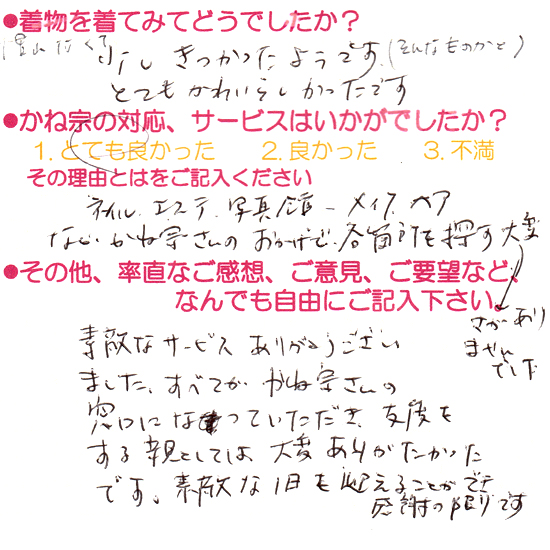 ●着物を着てみてどうでしたか？
少しきつかったようです。(そんなものかと)
とてもかわいらしかったです
●かね宗の対応、サービスはいかがでしたか？
1.とても良かった 2.良かった 3.不満
その理由とはをご記入ください
ネイル、エステ、写真館、メイク、ヘア
など、かね宗さんのおかげで、各箇所を探す大変
さがあり
ませんでした
●その他、率直なご感想、ご意見、ご要望など、
なんでも自由にご記入下さい。
素敵なサービスありがとうござい
ました。すべてがかね宗さんの
窓口になっていただき、支度を
する親としては大変ありがたかった
です。素敵な1日を迎えることができ
感謝の限りです